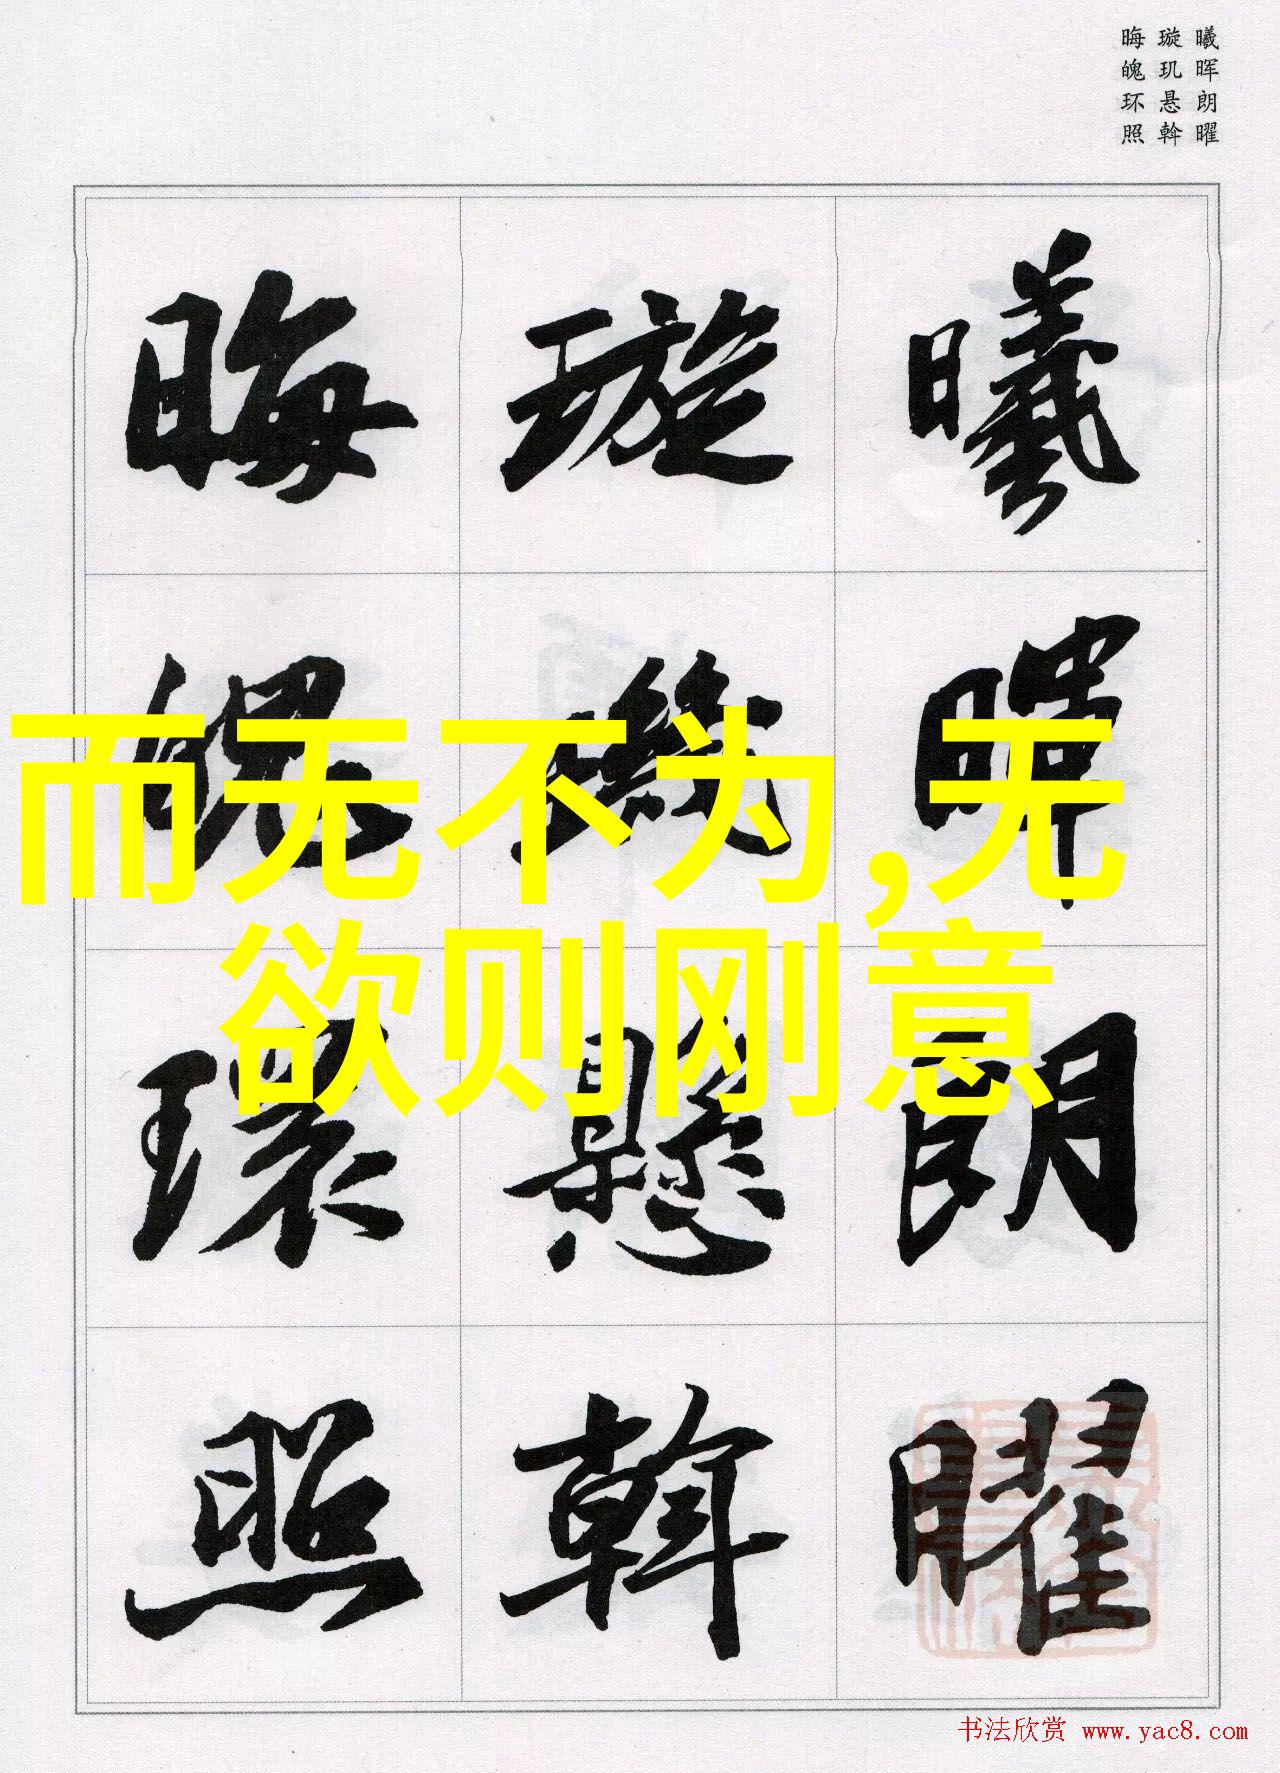 曦晖朗曜
璇玑悬斡
晦魄环照
曦暉朗曜
璇璣懸斡
晦魄環照
而无不为,无
欲则刚意
书法欣赏 www.yac8.com